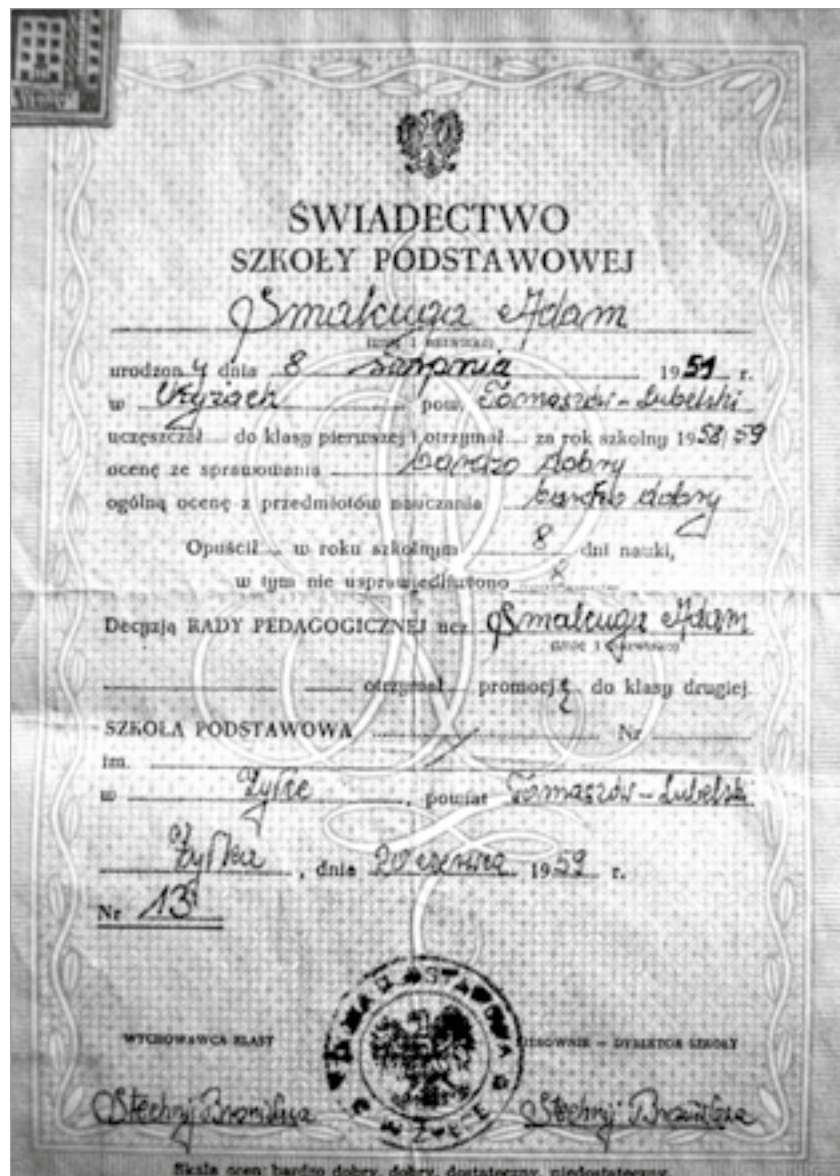 ŚWIADECTWO
SZKOŁY PODSTAWOWEJ
Smalcuga Adam
(imię i nazwisko)
urodzony dnia 8 sierpnia 1951 r.
w pow. Tomaszów-Lubelski
uczęszczał do klasy pierwszej i otrzymał za rok szkolny 1958/59
ocenę ze sprawowania bardzo dobry
ogólną ocenę z przedmiotów nauczania bardzo dobry
Opuścił w roku szkolnym 8 dni nauki,
w tym nie usprawiedliwiono 8
Decyzją RADY PEDAGOGICZNEJ ucz. Smalcuga Adam
(imię i nazwisko)
otrzymał promocję do klasy drugiej.
SZKOŁA PODSTAWOWA Nr
im.
w , powiat Tomaszów-Lubelski
, dnia 20 czerwca 1959 r.
Nr 13
WYCHOWAWCA KLASY KIEROWNIK — DYREKTOR SZKOŁY
Skala ocen: bardzo dobry, dobry, dostateczny, niedostateczny.